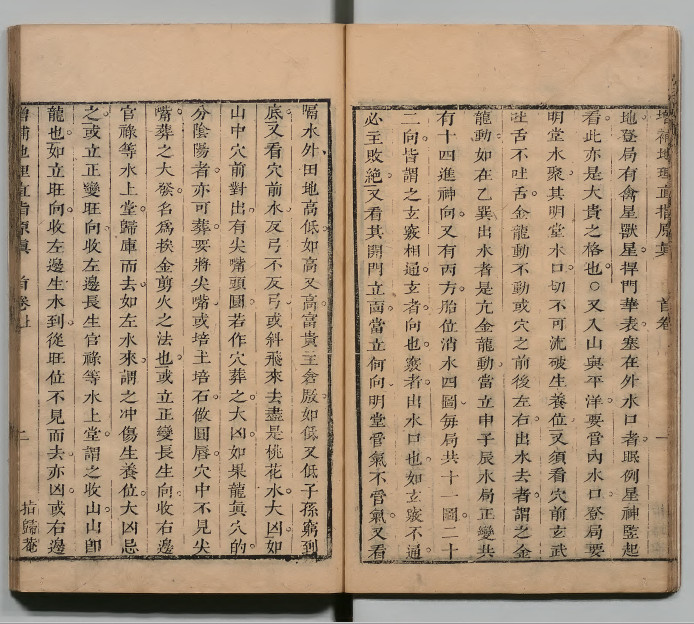 增補地理直指原真 首卷 一
地登局有禽星獸星捍門華表塞在外水口者眠倒星神監起
看此亦是大貴之格也○又入山與平洋要管內水口登局要
明堂水聚其明堂水口切不可流破生養位又須看穴前玄武
吐舌不吐舌金龍動不動或穴之前後左右出水去者謂之金
龍動如在乙巽出水者是亢金龍動當立申子辰水局正變共
有十四進神向又有丙方胎位消水四圖每局共十一圖二十
二向皆謂之玄竅相通玄者向也竅者出水口也如玄竅不通
必主敗絕又看其開門立面當立何向明堂管氣不管氣又看
隔水外田地高低如高又高富貴主倉廒如低又低子孫窮到
底又看穴前水反弓不反弓或斜飛來去盡是桃花水大凶如
山中穴前對出有尖嘴頭圓若作穴葬之大凶如果龍真穴的
分陰陽者亦可葬要將尖嘴或培土培石做圓唇穴中不見尖
嘴葬之大發名爲挨金剪火之法也或立正變長生向收右邊
官祿等水上堂歸庫而去如左水來謂之冲傷生養位大凶忌
之或立正變旺向收左邊長生官祿等水上堂謂之收山山卽
龍也如立旺向收左邊生水到從旺位不見而去亦凶或右邊
增補地理直指原真 首卷上 二 指歸菴